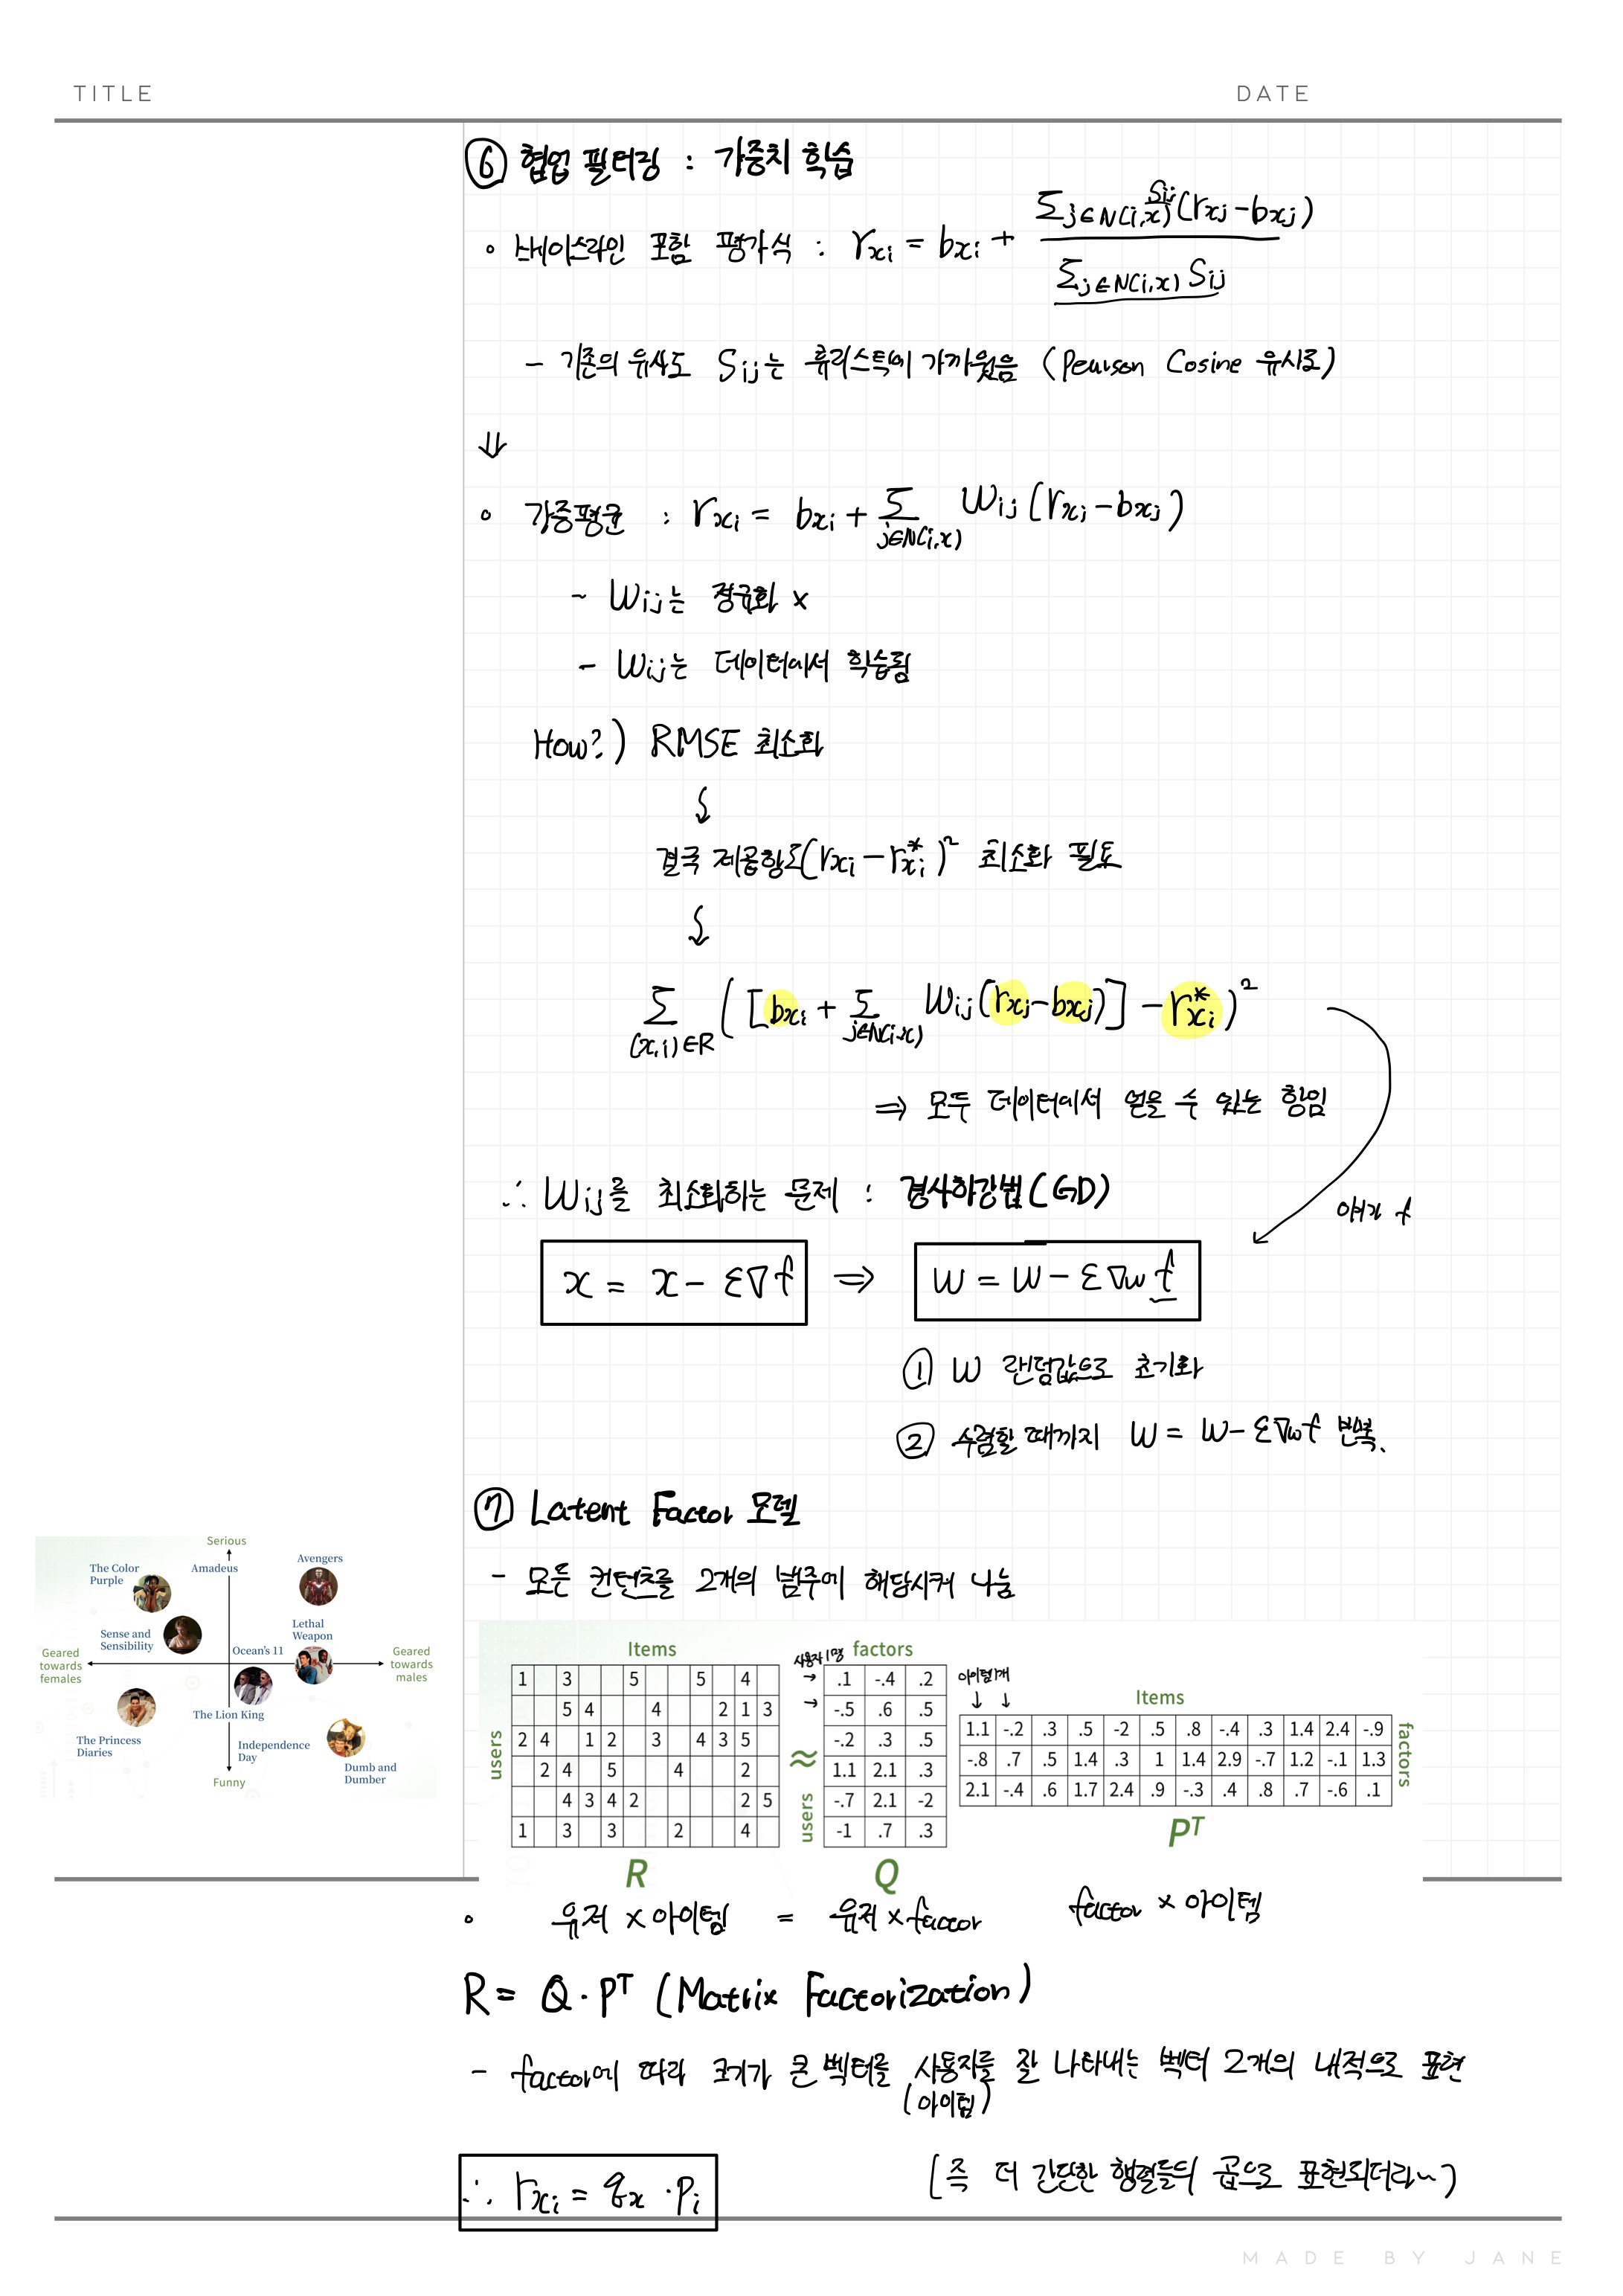 TITLE DATE
⑥ 협업 필터링 : 가중치 학습
◦ 베이스라인 포함 평가식 : r_xi = b_xi + Σ_j∈N(i,x) S_ij (r_xj - b_xj) / Σ_j∈N(i,x) S_ij
- 기존의 유사도 S_ij는 휴리스틱에 가까웠음 (Pearson Cosine 유사로)
⇓
◦ 가중평균 : r_xi = b_xi + Σ_j∈N(i,x) W_ij (r_xj - b_xj)
- W_ij는 정규화 x
- W_ij는 데이터에서 학습됨
How?) RMSE 최소화
↓
결국 제곱항 Σ(r_xi - r*_xi)² 최소화 필요
↓
Σ_(x,i)∈R ([b_xi + Σ_j∈N(i,x) W_ij (r_xj - b_xj)] - r*_xi)²
⇒ 모두 데이터에서 얻을 수 있는 항임
∴ W_ij를 최소화하는 문제 : 경사하강법(GD)
여기 f
x = x - ε∇f ⇒ W = W - ε∇w f
① W 랜덤값으로 초기화
② 수렴할 때까지 W = W - ε∇w f 반복.
⑦ Latent Factor 모델
- 모든 컨텐츠를 2개의 범주에 해당시켜 나눔
Serious
The Color Purple
Amadeus
Avengers
Sense and Sensibility
Lethal Weapon
Ocean's 11
Geared towards females
Geared towards males
The Lion King
The Princess Diaries
Independence Day
Dumb and Dumber
Funny
Items 사용자 1명 factors
아이템1개
→ → ↓ ↓
Items
users
1 3 5 5 4
5 4 4 2 1 3
2 4 1 2 3 4 3 5
2 4 5 4 2
4 3 4 2 2 5
1 3 3 2 4
R
≈
users
.1 -.4 .2
-.5 .6 .5
-.2 .3 .5
1.1 2.1 .3
-.7 2.1 -2
-1 .7 .3
Q
1.1 -.2 .3 .5 -2 .5 .8 -.4 .3 1.4 2.4 -.9
-.8 .7 .5 1.4 .3 1 1.4 2.9 -.7 1.2 -.1 1.3
2.1 -.4 .6 1.7 2.4 .9 -.3 .4 .8 .7 -.6 .1
factors
Pᵀ
◦ 유저 x 아이템 = 유저 x factor factor x 아이템
R = Q · Pᵀ (Matrix Factorization)
- factor에 따라 크기가 큰 벡터를 사용자를 잘 나타내는 벡터 2개의 내적으로 표현
(아이템)
(즉 더 간단한 행렬들의 곱으로 표현되더라~)
∴ r_xi = q_x · p_i
MADE BY JANE